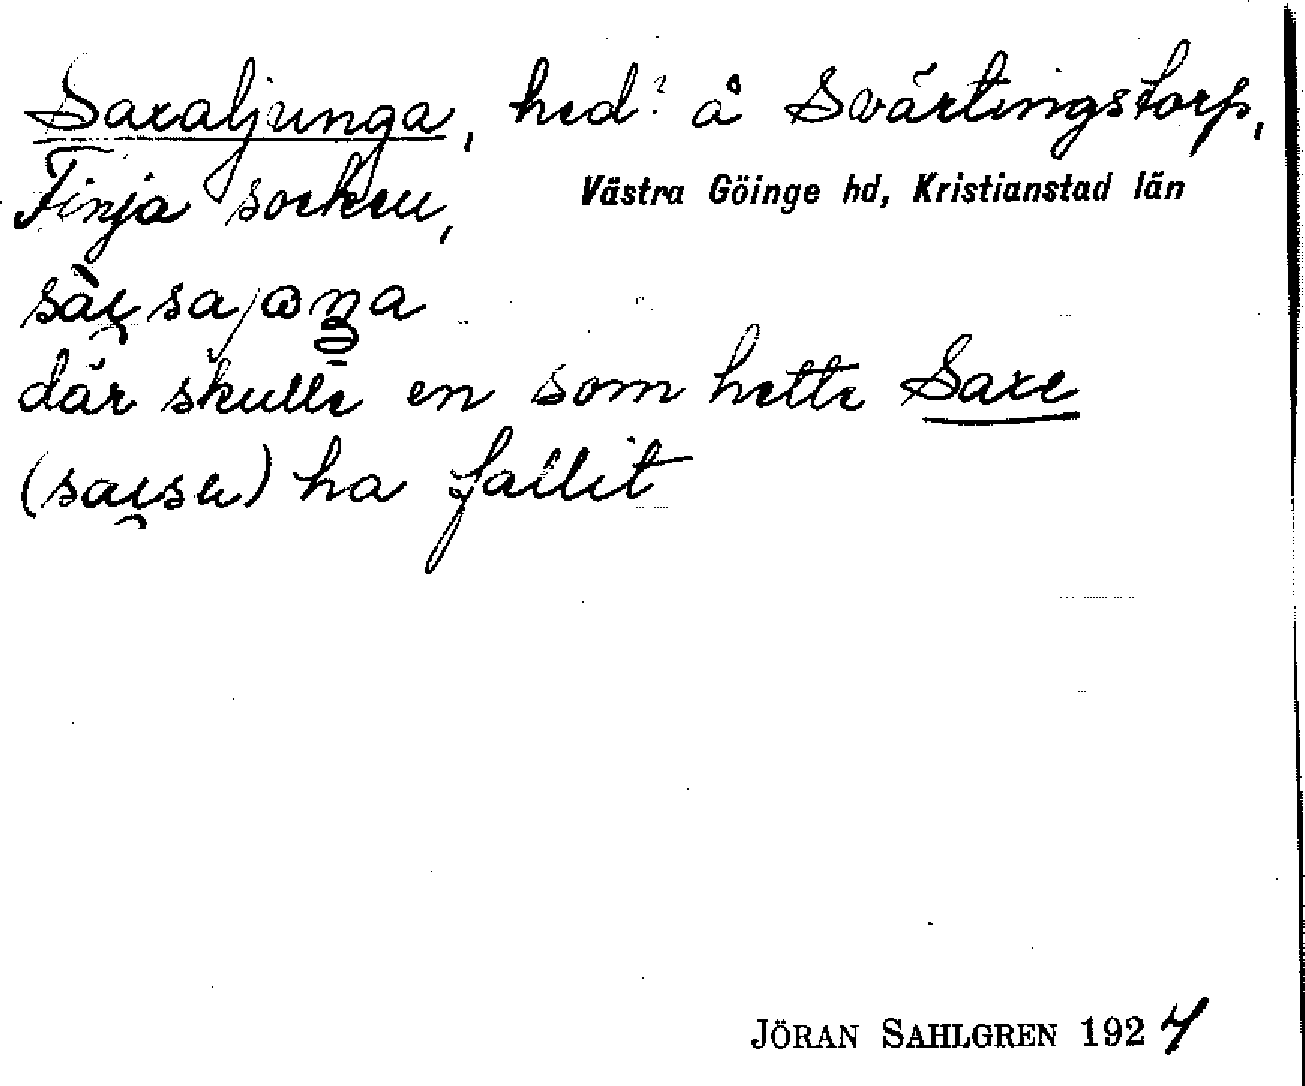 Saxaljunga, hed? å Svärtingstorp,
Finja socken, Västra Göinge hd, Kristianstad län
där skulle en som hette Saxe
ha fallit
JÖRAN SAHLGREN 1924